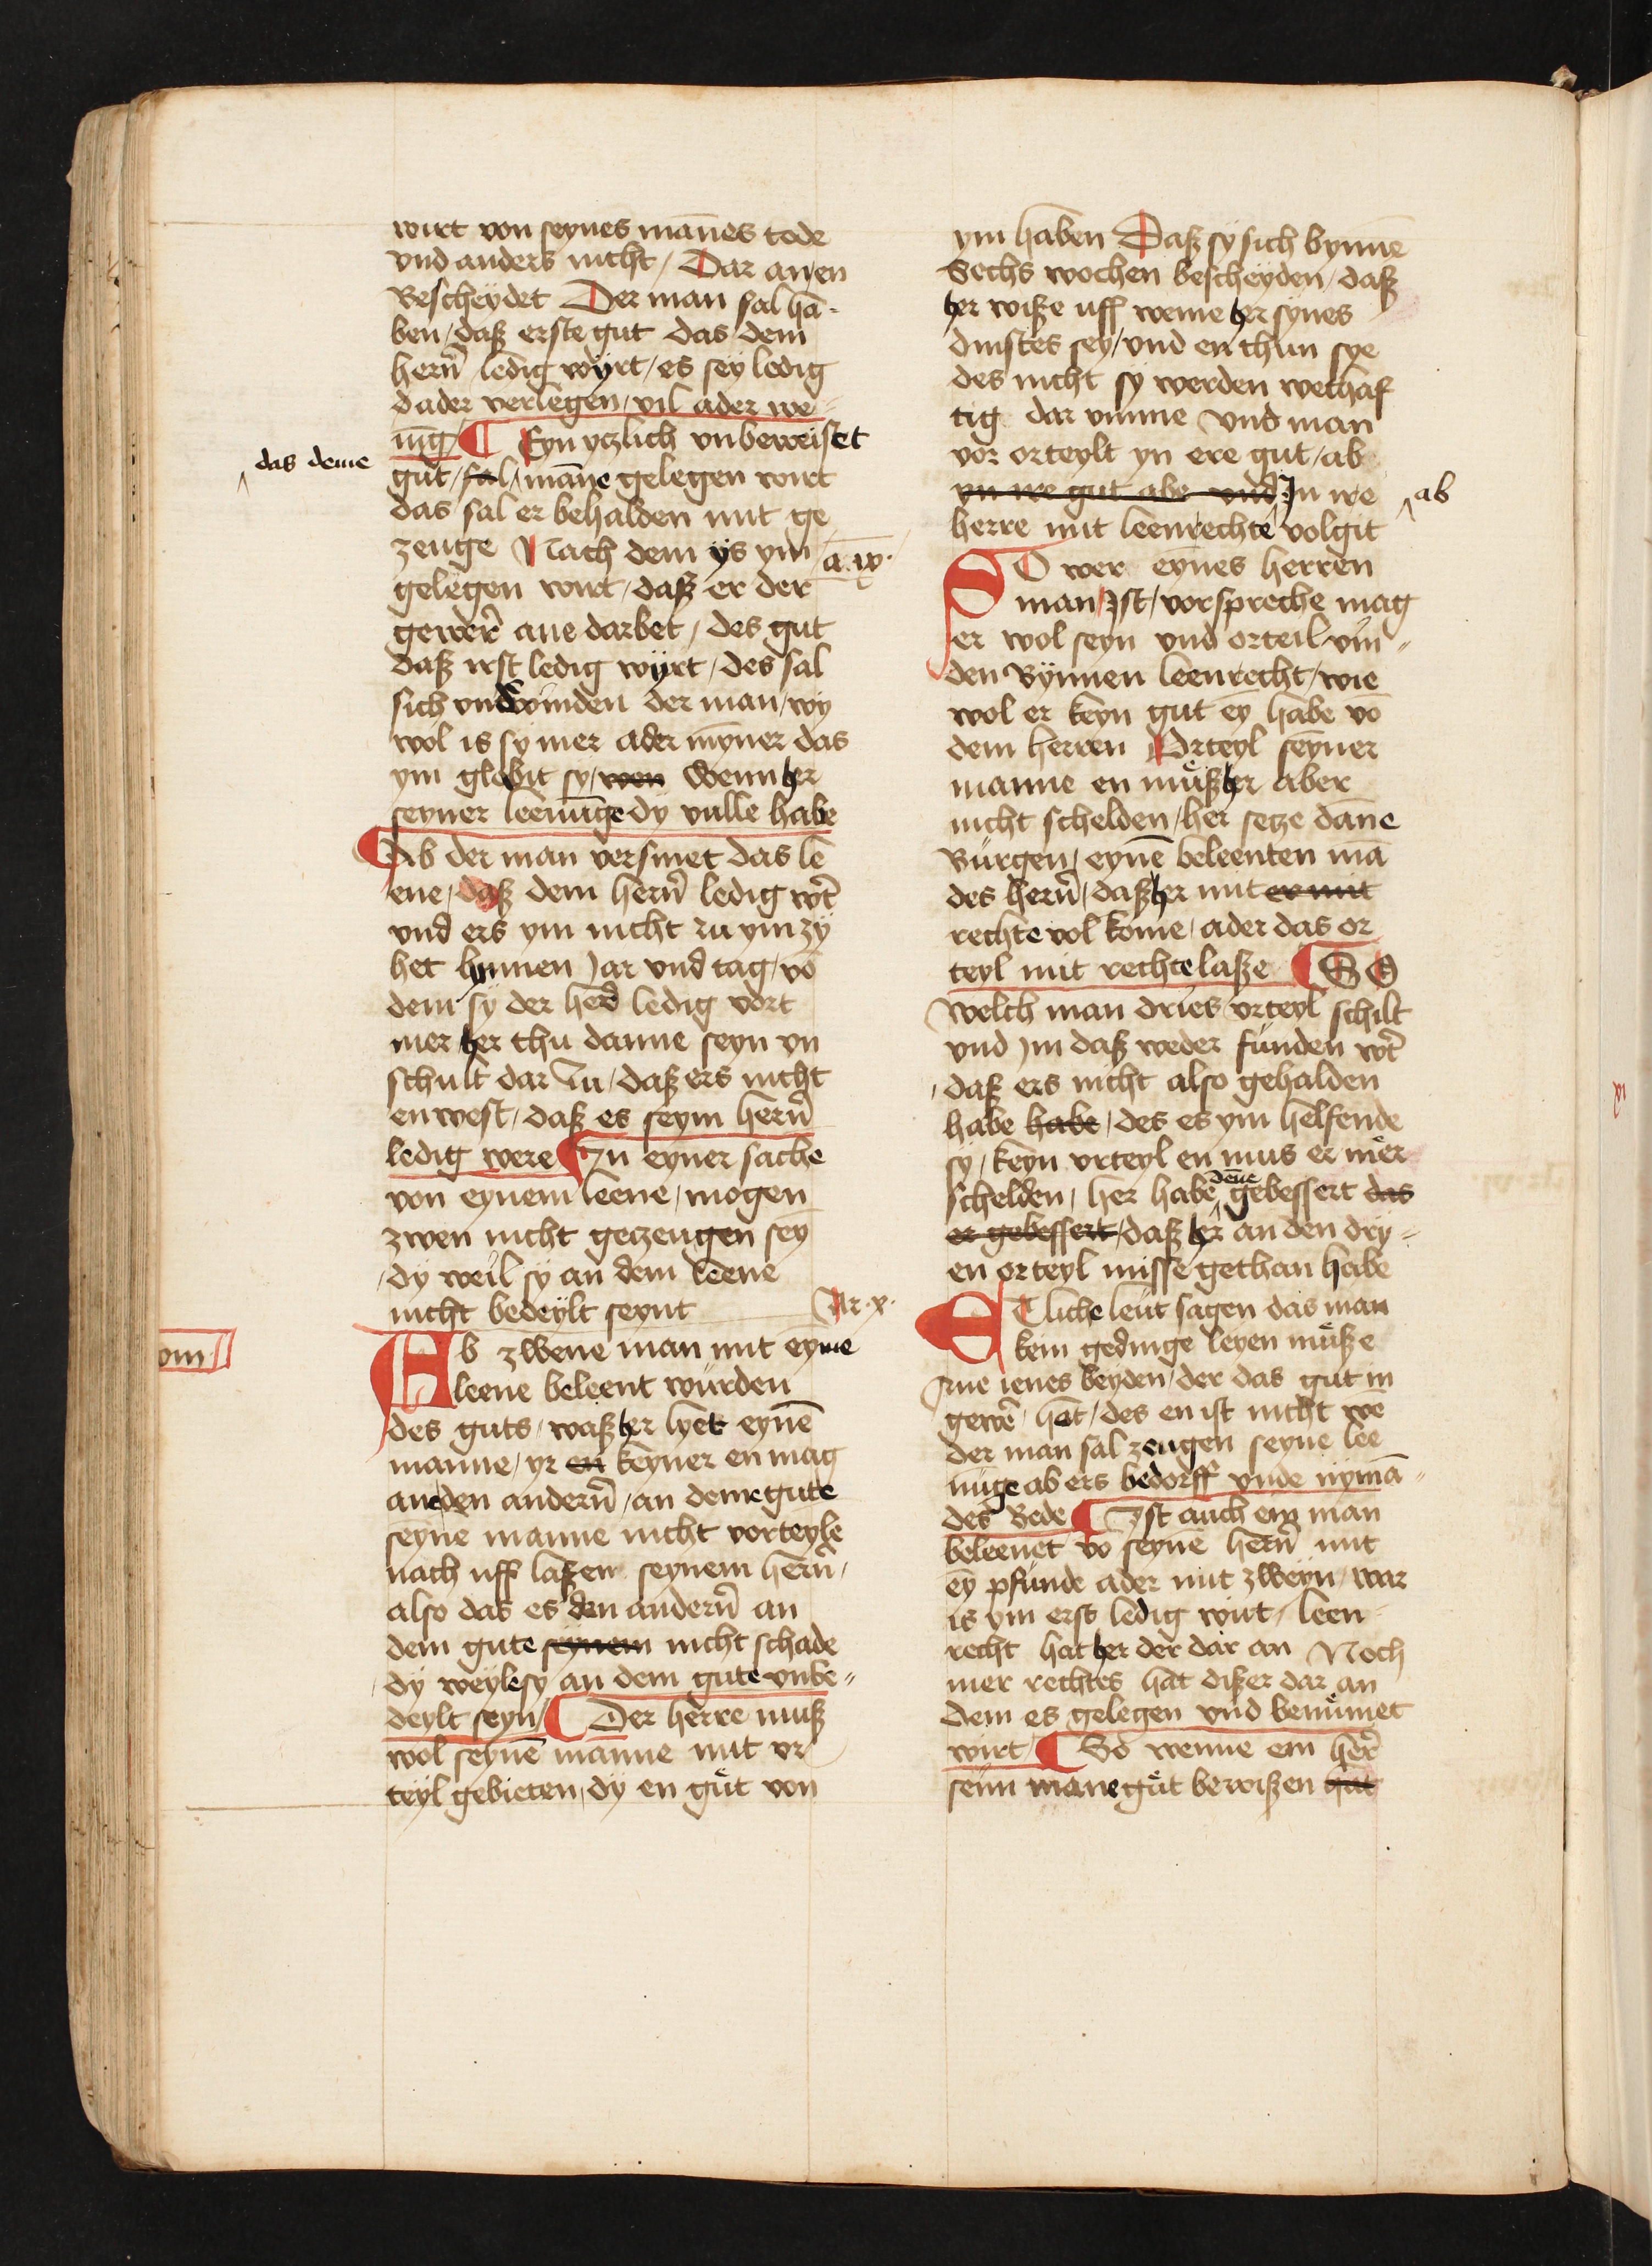 wirt von seynes mānes tode
vnd anders nicht / Dar an en
Bescheydet Der man sal ha-
ben / daß erste gut das dem
hern̄ ledig wyrt / es sey ledig
d ader verlegen / vil ader we-
nīg / ¶ Eyn yczlich vnbeweiset
das deme
gut / sal / māne gelegen wirt
das sal er behalden mit ge
zeuge Nach dem ys ym
gelegen wirt / daß er der
gewer̄ ane darbet / des gut
daß irst ledig wyrt / des sal
sich vndwinden der man / wy
wol is sy mer ader myner das
ym globit sy / wen Wenn her
seyner leenūge dy vulle habe
¶ Ab der man versmet das le
ene / daß dem hern̄ ledig wt̄
vnd ers ym nicht zu ym zy
het bynnen Jar vnd tag / vō
dem sy der her̄ ledig vort
mer her thu danne seyn vn
schult dar zu / daß ers nicht
en west / daß es seym hern̄
ledig were ¶ In eyner sache
von eynem leene / mogen
zwen nicht geczeugen sey
/ dy weil sy an dem leene
nicht bedeylt seynt
Ar . x .
Ab zwene man mit eyme
leene beleent wurden
des guts / waß her lyet eynē
manne / yr en keyner en mag
an den andern̄ / an deme gute
seyne manne nicht vorteyle
nach uff laßen seynem hern̄ /
also das es den andern̄ an
dem gute seynem nicht schade
/ dy weyle sy an dem gute vnbe-
deylt seyn / ¶ Der herre muß
wol seynē manne mit vr
teyl gebieten / dy en gut von
ym haben Daß sy sich bynnē
Sechs wochen bescheyden / daß
her wiße uff weme her synes
dinstes sey / vnd en thun sye
des nicht sy werden wethaf
tig dar vmme vnd man
vor orteylt yn ere gut / ab
yn ire gut abe vnd In ire
ab
herre mit leenrechte volgit
SO wer eynes herren
man / Ist / vorspreche mag
er wol seyn vnd orteil vin-
den Bynnen leenrecht / wie
wol er keyn gut ey habe vō
dem herren Orteyl seyner
manne en muß her aber
nicht schelden / her secze dāne
Burgen / eynē beleenten mā
des hern̄ / daß her mit er mit
rechte vol kome / ader das or
teyl mit rechte laße ¶ SO
welch man dries vrteyl schilt
vnd Im daß weder funden wt̄
/ daß ers nicht also gehalden
habe habe / des es ym helfende
sy / keyn vrteyl en mus er mer
schelden / her habe dēne gebessert das
er gebessert / daß her an den dry-
en orteyl misse gethan habe
ETliche leut sagen das man
kein gedinge leyen muße
Ane ienes beyden / der das gut in
gewer̄ / hat / des en ist nicht wē
der man sal zeugen seyne lee
nūge ab ers bedorff vnde nymā-
des Bede ¶ Ist auch ein man
beleenet vō seynē hern̄ mit
ey pfunde ader mit zweyn / war
is ym erst ledig wirt / leen-
recht hat her der dar an Noch
mer rechtes hat dißer dar an
dem es gelegen vnd benumet
wirt / ¶ So wenne ein her̄
seim mane gut bewißen hat